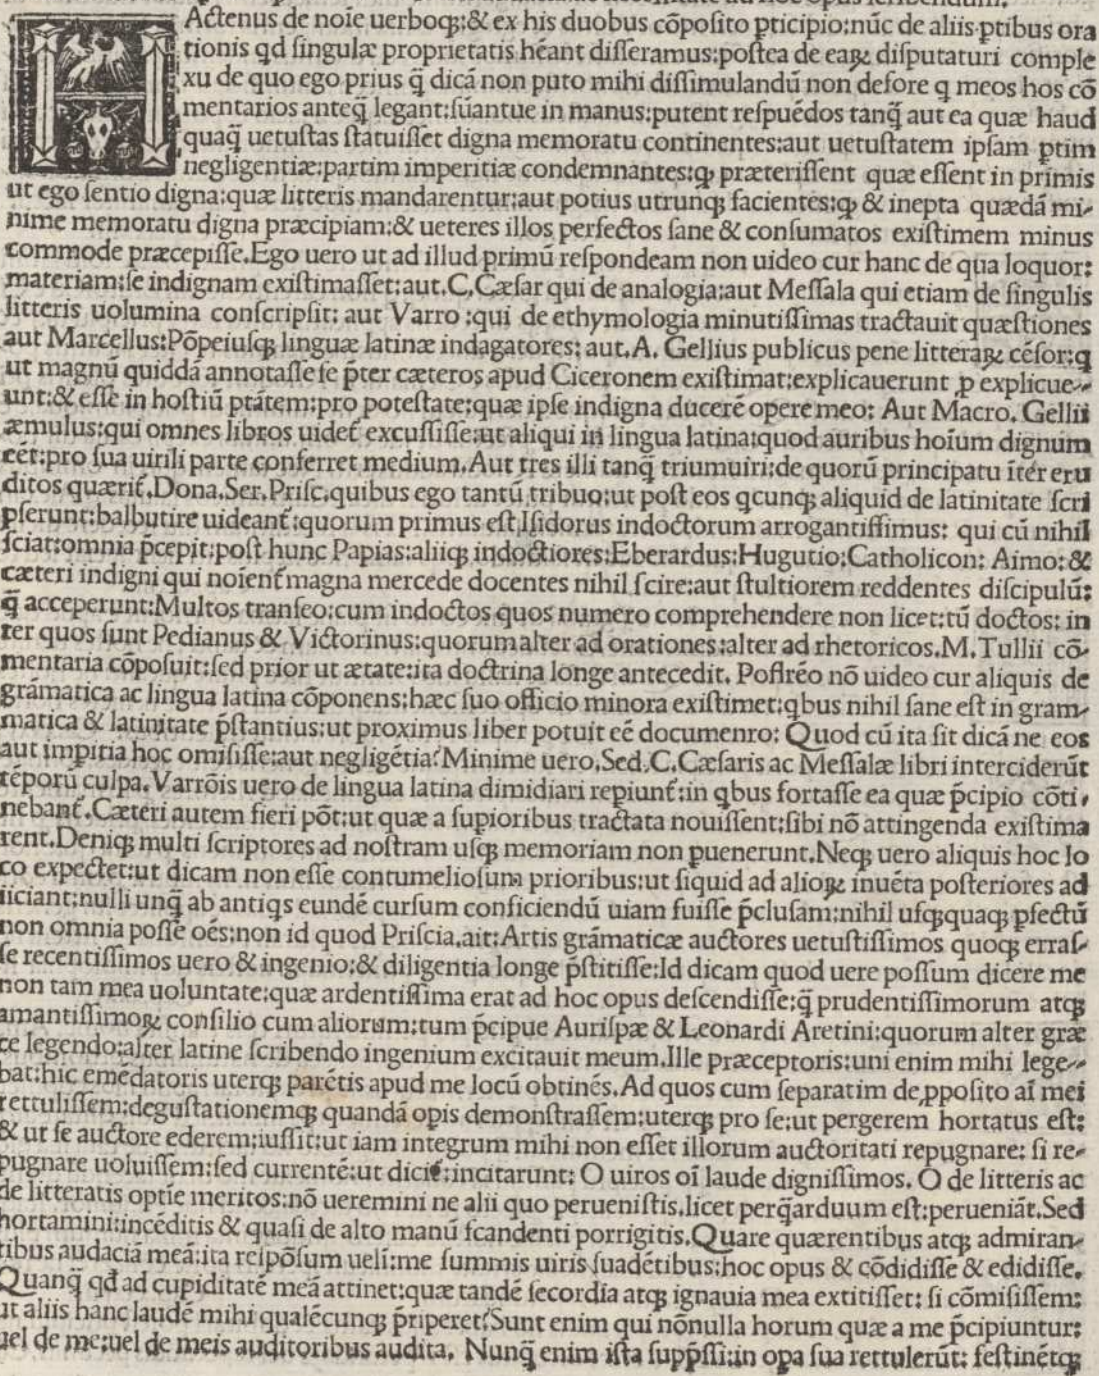 HActenus de noīe uerboq;:& ex his duobus cōposito p̱ticipio:nūc de aliis p̱tibus ora
tionis qd singulæ proprietatis hēant disseramus:postea de eaꝝ disputaturi comple
xu de quo ego prius q̄ dicā non puto mihi dissimulandū non defore q meos hos cō
mentarios anteq̄ legant:sūantue in manus:putent respuēdos tanq̄ aut ea quæ haud
quaq̄ uetustas statuisset digna memoratu continentes:aut uetustatem ipsam ꝑtim
negligentiæ:partim imperitiæ condemnantes:ꝙ præterissent quæ essent in primis
ut ego sentio digna:quæ litteris mandarentur:aut potius utrunq; facientes:ꝙ & inepta quædā mi-
nime memoratu digna præcipiam:& ueteres illos perfectos sane & consumatos existimem minus
commode præcepisse.Ego uero ut ad illud primū respondeam non uideo cur hanc de qua loquor:
materiam:se indignam existimasset:aut.C.Cæsar qui de analogia:aut Messala qui etiam de singulis
litteris uolumina conscripsit: aut Varro :qui de ethymologia minutissimas tractauit quæstiones
aut Marcellus:Pōpeiusq; linguæ latinæ indagatores: aut.A. Gellius publicus pene litteraꝝ cēsor:q
ut magnū quiddā annotasse se p̄ter cæteros apud Ciceronem existimat:explicauerunt ꝓ explicue-
unt:& esse in hostiū ptātem:pro potestate:quæ ipse indigna ducerē opere meo: Aut Macro. Gellii
æmulus:qui omnes libros uidet᷑ excussisse:ut aliqui in lingua latina:quod auribus hoīum dignum
eēt:pro sua uirili parte conferret medium.Aut tres illi tanq̄ triumuiri:de quorū principatu īter eru
ditos quærit᷑.Dona.Ser.Prisc.quibus ego tantū tribuo:ut post eos qcunq; aliquid de latinitate scri
pserunt:balbutire uideant᷑:quorum primus est Isidorus indoctorum arrogantissimus: qui cū nihil
sciat:omnia p̄cepit:post hunc Papias:aliiq; indoctiores:Eberardus:Hugutio:Catholicon: Aimo:&
cæteri indigni qui noīent᷑ magna mercede docentes nihil scire:aut stultiorem reddentes discipulū:
q̄ acceperunt:Multos transeo:cum indoctos quos numero comprehendere non licet:tū doctos: in
ter quos sunt Pedianus & Victorinus:quorum alter ad orationes:alter ad rhetoricos.M.Tullii cō-
mentaria cōposuit:sed prior ut ætate:ita doctrina longe antecedit. Postrēo nō uideo cur aliquis de
grāmatica ac lingua latina cōponens:hæc suo officio minora existimet:qbus nihil sane est in gram-
matica & latinitate p̄stantius:ut proximus liber potuit eē documenro: Quod cū ita sit dicā ne eos
aut impitia hoc omisisse:aut negligētia?Minime uero.Sed.C.Cæsaris ac Messalæ libri interciderūt
tēporū culpa.Varrōis uero de lingua latina dimidiari repiunt᷑:in qbus fortasse ea quæ p̄cipio cōti,
nebant᷑.Cæteri autem fieri pōt:ut quæ a supioribus tractata nouissent:sibi nō attingenda existima
rent.Deniq; multi scriptores ad nostram usq; memoriam non ꝑuenerunt.Neq; uero aliquis hoc lo
co expectet:ut dicam non esse contumeliosum prioribus:ut siquid ad alioꝝ inuēta posteriores ad
iiciant:nulli unq̄ ab antiqs eundē cursum conficiendū uiam fuisse p̄clusam:nihil usq;quaq; ꝑfectū
non omnia posse oēs:non id quod Priscia.ait:Artis grāmaticæ auctores uetustissimos quoq; erras-
se recentissimos uero & ingenio:& diligentia longe p̄stitisse:Id dicam quod uere possum dicere me
non tam mea uoluntate:quæ ardentissima erat ad hoc opus descendisse:q̄ prudentissimorum atq;
amantissimoꝝ consilio cum aliorum:tum p̄cipue Aurispæ & Leonardi Aretini:quorum alter græ
ce legendo:alter latine scribendo ingenium excitauit meum.Ille præceptoris:uni enim mihi lege-
bat:hic emēdatoris uterq; parētis apud me locū obtinēs.Ad quos cum separatim de ꝓposito aī mei
rettulissem:degustationemq; quandā opis demonstrassem:uterq; pro se:ut pergerem hortatus est:
& ut se auctore ederem:iussit:ut iam integrum mihi non esset illorum auctoritati repugnare: si re-
pugnare uoluissem:sed currentē:ut dicit᷑:incitarunt: O uiros oī laude dignissimos. O de litteris ac
de litteratis optīe meritos:nō ueremini ne alii quo peruenistis.licet perq̄arduum est:perueniāt.Sed
hortamini:incēditis & quasi de alto manū scandenti porrigitis.Quare quærentibus atq; admiran-
tibus audaciā meā:ita respōsum uelī:me summis uiris suadētibus:hoc opus & cōdidisse & edidisse.
Quanq̄ qđ ad cupiditatē meā attinet:quæ tandē secordia atq; ignauia mea extitisset: si cōmisissem:
ut aliis hanc laudē mihi qualēcunq; p̄riperet?Sunt enim qui nōnulla horum quæ a me p̄cipiuntur:
uel de me:uel de meis auditoribus audita. Nunq̄ enim ista supp̄ssi:in opa sua rettulerūt: festinētq;